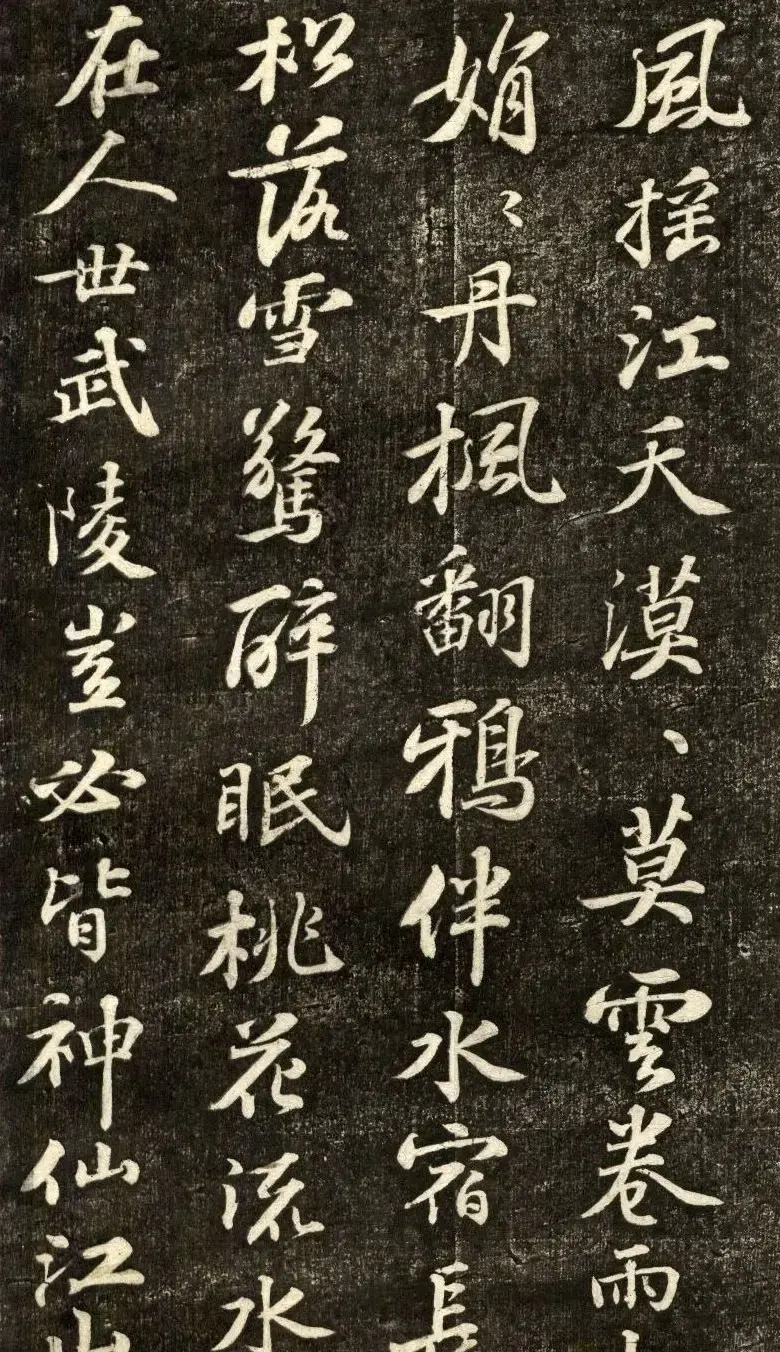 風搖江天漠、莫雲卷雨
娟〻丹楓翻鴉伴水宿長
松落雪驚醉眠桃花流水
在人世武陵豈必皆神仙江山